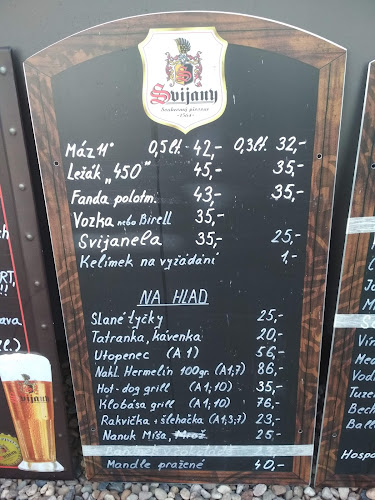 Svijany
Soukromý pivovar
1564
Máz 11° 0,5lt. 42,- 0,3lt. 32,-
Ležák „450" 45,- 35,-
Fanda polotm. 43,- 35,-
Vozka nebo Birell 35,-
Svijanela 35,- 25,-
Kelímek na vyžádání 1,-
NA HLAD
Slané tyčky 25,-
Tatranka, kávenka 20,-
Utopenec (A1) 56,-
Nakl. Hermelín 100gr. (A1;7) 86,-
Hot-dog grill (A1;10) 35,-
Klobása grill (A1;10) 76,-
Rakvička + šlehačka (A1;3;7) 23,-
Nanuk Míša, Mrož 25-
Mandle pražené 40,-
Svijany